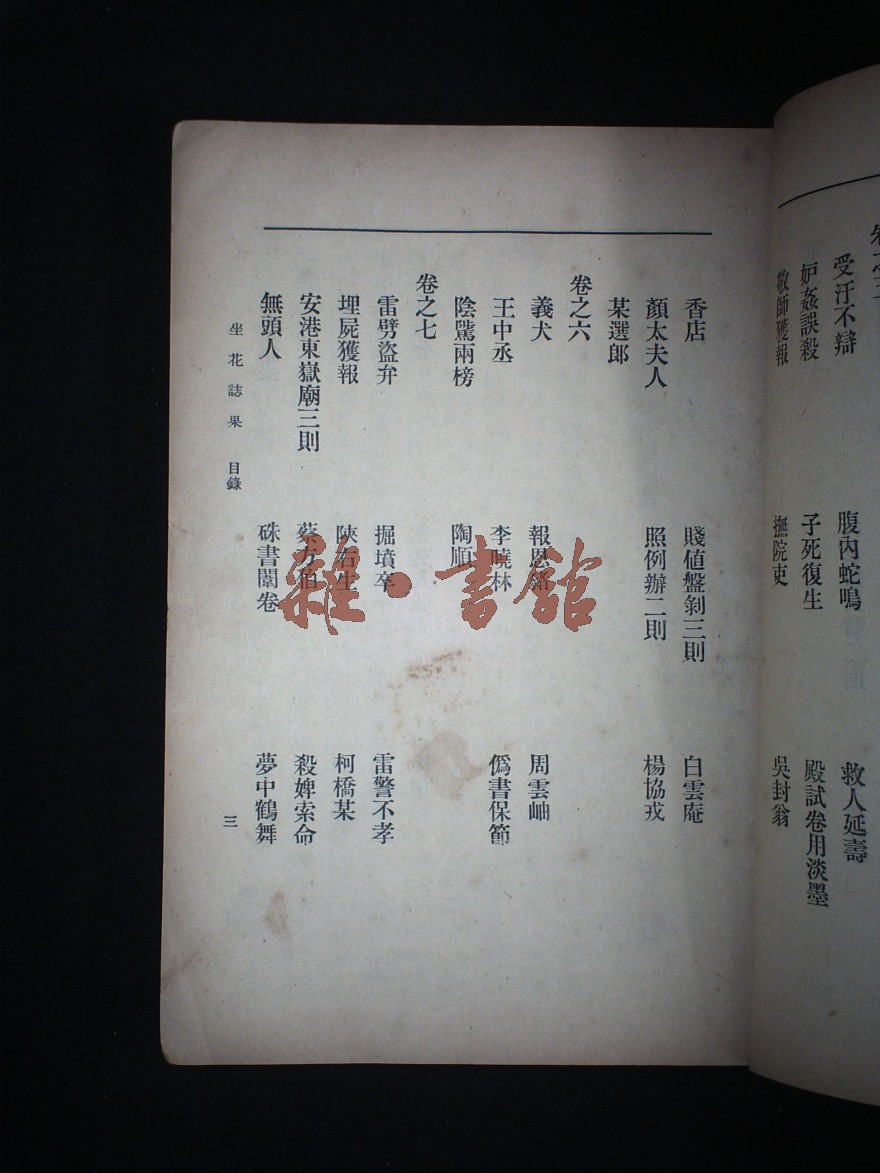 受汙不辯 腹內蛇鳴 救人延壽
妒姦誤殺 子死復生 殿試卷用淡墨
敬師獲報 撫院吏 吳封翁
香店 賤值盤剝三則 白雲庵
顏太夫人 照例辦二則 楊協戎
某選郎
卷之六
義犬 報恩 周雲岫
王中丞 李曉林 僞書保節
陰騭兩榜 陶順
卷之七
雷劈盜弁 掘墳卒 雷警不孝
埋屍獲報 陝右生 柯橋某
安港東嶽廟三則 蔡方伯 殺婢索命
無頭人 硃書闈卷 夢中鶴舞
坐花誌果 目錄 三
雜·書館